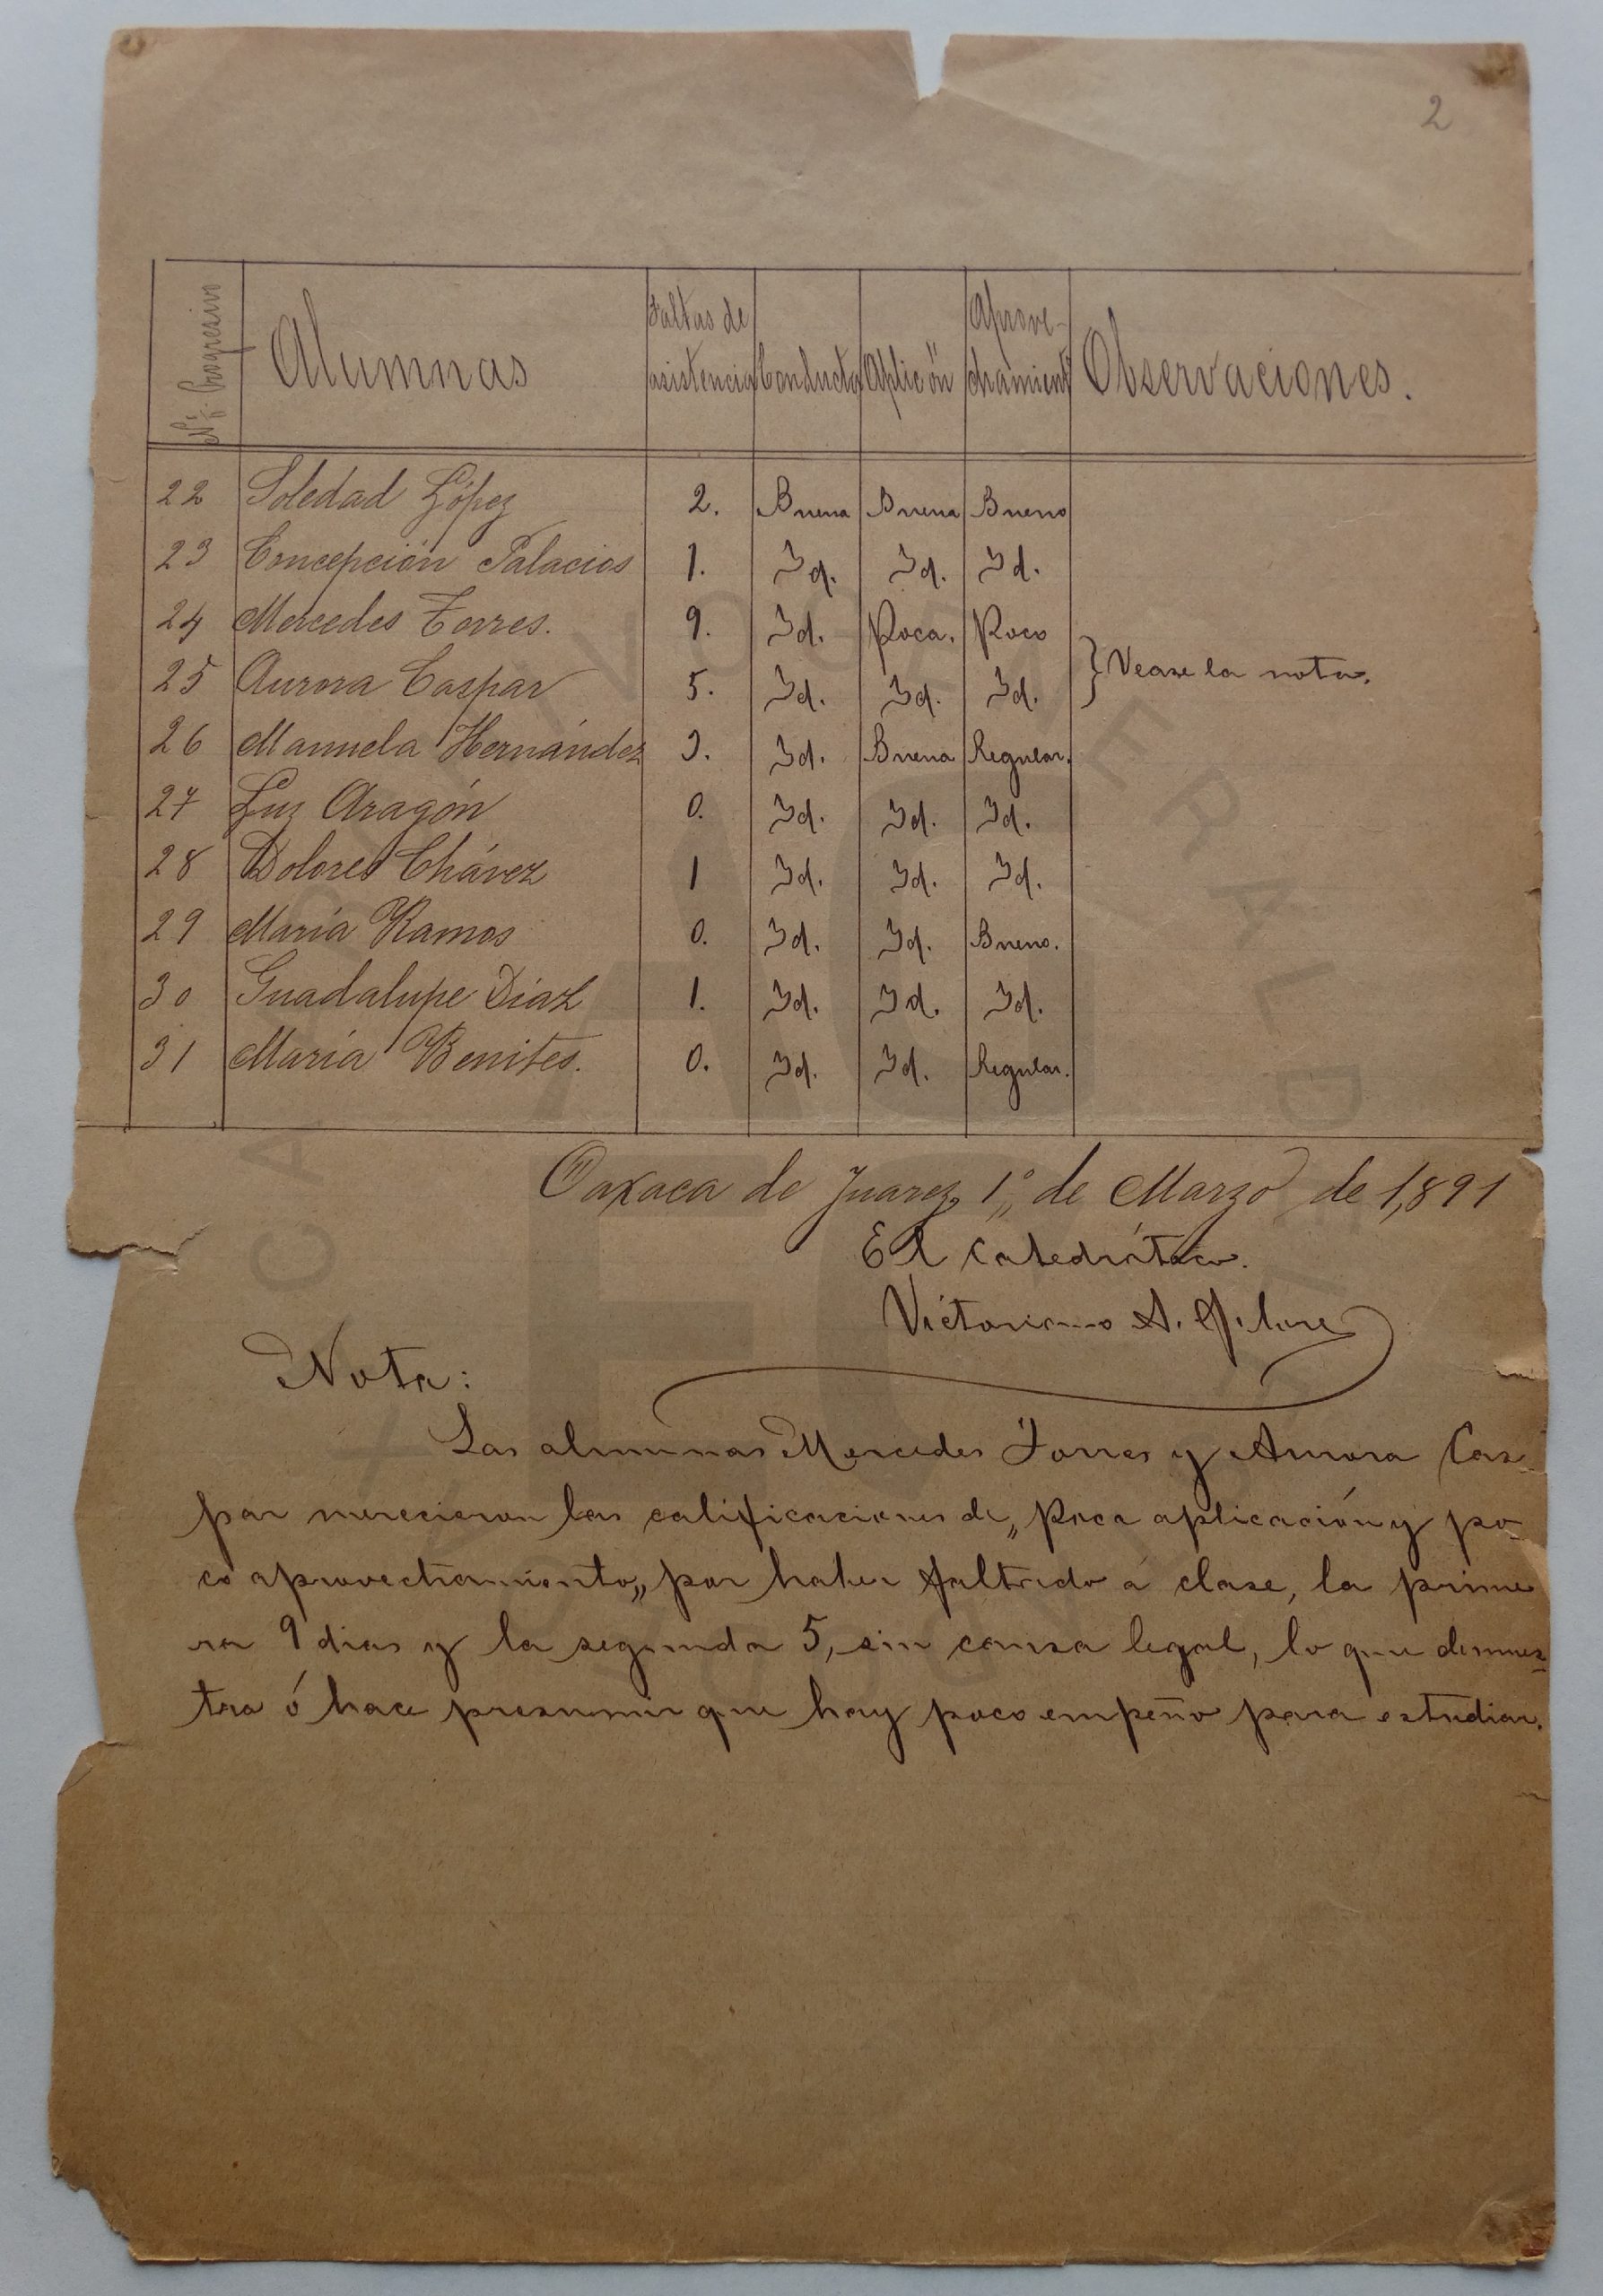 2
Nº Progresivo Alumnas Faltas de asistencia Conducta Aplicón Aprove-chamientº Observaciones.
22 Soledad López 2. Buena Buena Bueno
23 Concepción Palacios 1. Id. Id. Id.
24 Mercedes Torres. 9. Id. Poca. Poco
} Vease la nota.
25 Aurora Caspar 5. Id. Id. Id.
26 Manuela Hernández 3. Id. Buena Regular.
27 Luz Aragón 0. Id. Id. Id.
28 Dolores Chávez 1 Id. Id. Id.
29 María Ramos 0. Id. Id. Bueno.
30 Guadalupe Díaz 1. Id. Id. Id.
31 María Benites. 0. Id. Id. Regular.
Oaxaca de Juarez, 1º de Marzo de 1,891
El Catedrático.
Victoriano A.
Nota:
Las alumnas Mercedes Torres y Aurora Cas-
par merecieron las calificaciones de „Poca aplicación y po-
co aprovechamiento„ por haber faltado á clase, la prime
ra 9 dias y la segunda 5, sin causa legal, lo que demues-
tra ó hace presumir que hay poco empeño para estudiar.